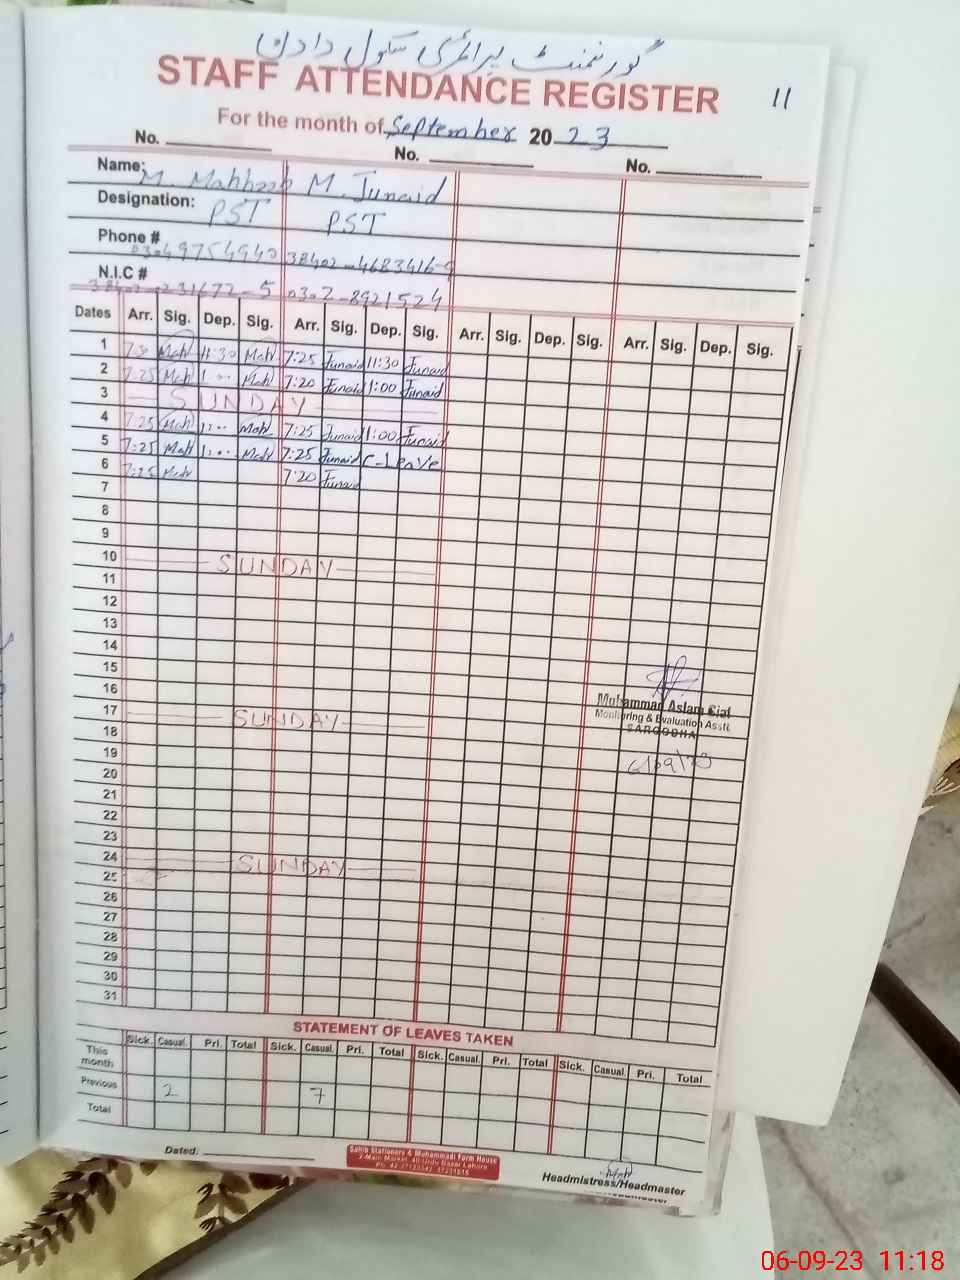 گورنمنٹ پرائمری سکول دادن
STAFF ATTENDANCE REGISTER 11
For the month of September 20 23
No. No. No.
Name: M. Mahboob M. Junaid
Designation: PST PST
Phone # 03049754940 38402-4683416-9
N.I.C # 0302-8921524
Dates Arr. Sig. Dep. Sig. Arr. Sig. Dep. Sig. Arr. Sig. Dep. Sig. Arr. Sig. Dep. Sig.
1 Mah 11:30 Mah 7:25 Junaid 11:30 Junaid
2 7:25 Mah Mah 7:20 Junaid 1:00 Junaid
3 SUNDAY
4 7:25 Mah 1:00 Mah 7:25 Junaid 1:00 Junaid
5 7:25 Mah 1:00 Mah 7:25 Junaid C-Leave
6 7:25 Mah 7:20 Junaid
7
8
9
10 SUNDAY
11
12
13
14
15
16
17 SUNDAY
18
19
20
21
22
23
24 SUNDAY
25
26
27
28
29
30
31
Muhammad Aslam
Monitoring & Evaluation Asstt.
SARGODHA
STATEMENT OF LEAVES TAKEN
Sick. Casual. Pri. Total Sick. Casual. Pri. Total Sick. Casual. Pri. Total Sick. Casual. Pri. Total
This month
Previous 2 7
Total
Dated:
Sahib Stationers & Mohammadi Form House
2-Main Market, 40-Urdu Bazar Lahore
Mah
Headmistress/Headmaster
06-09-23 11:18